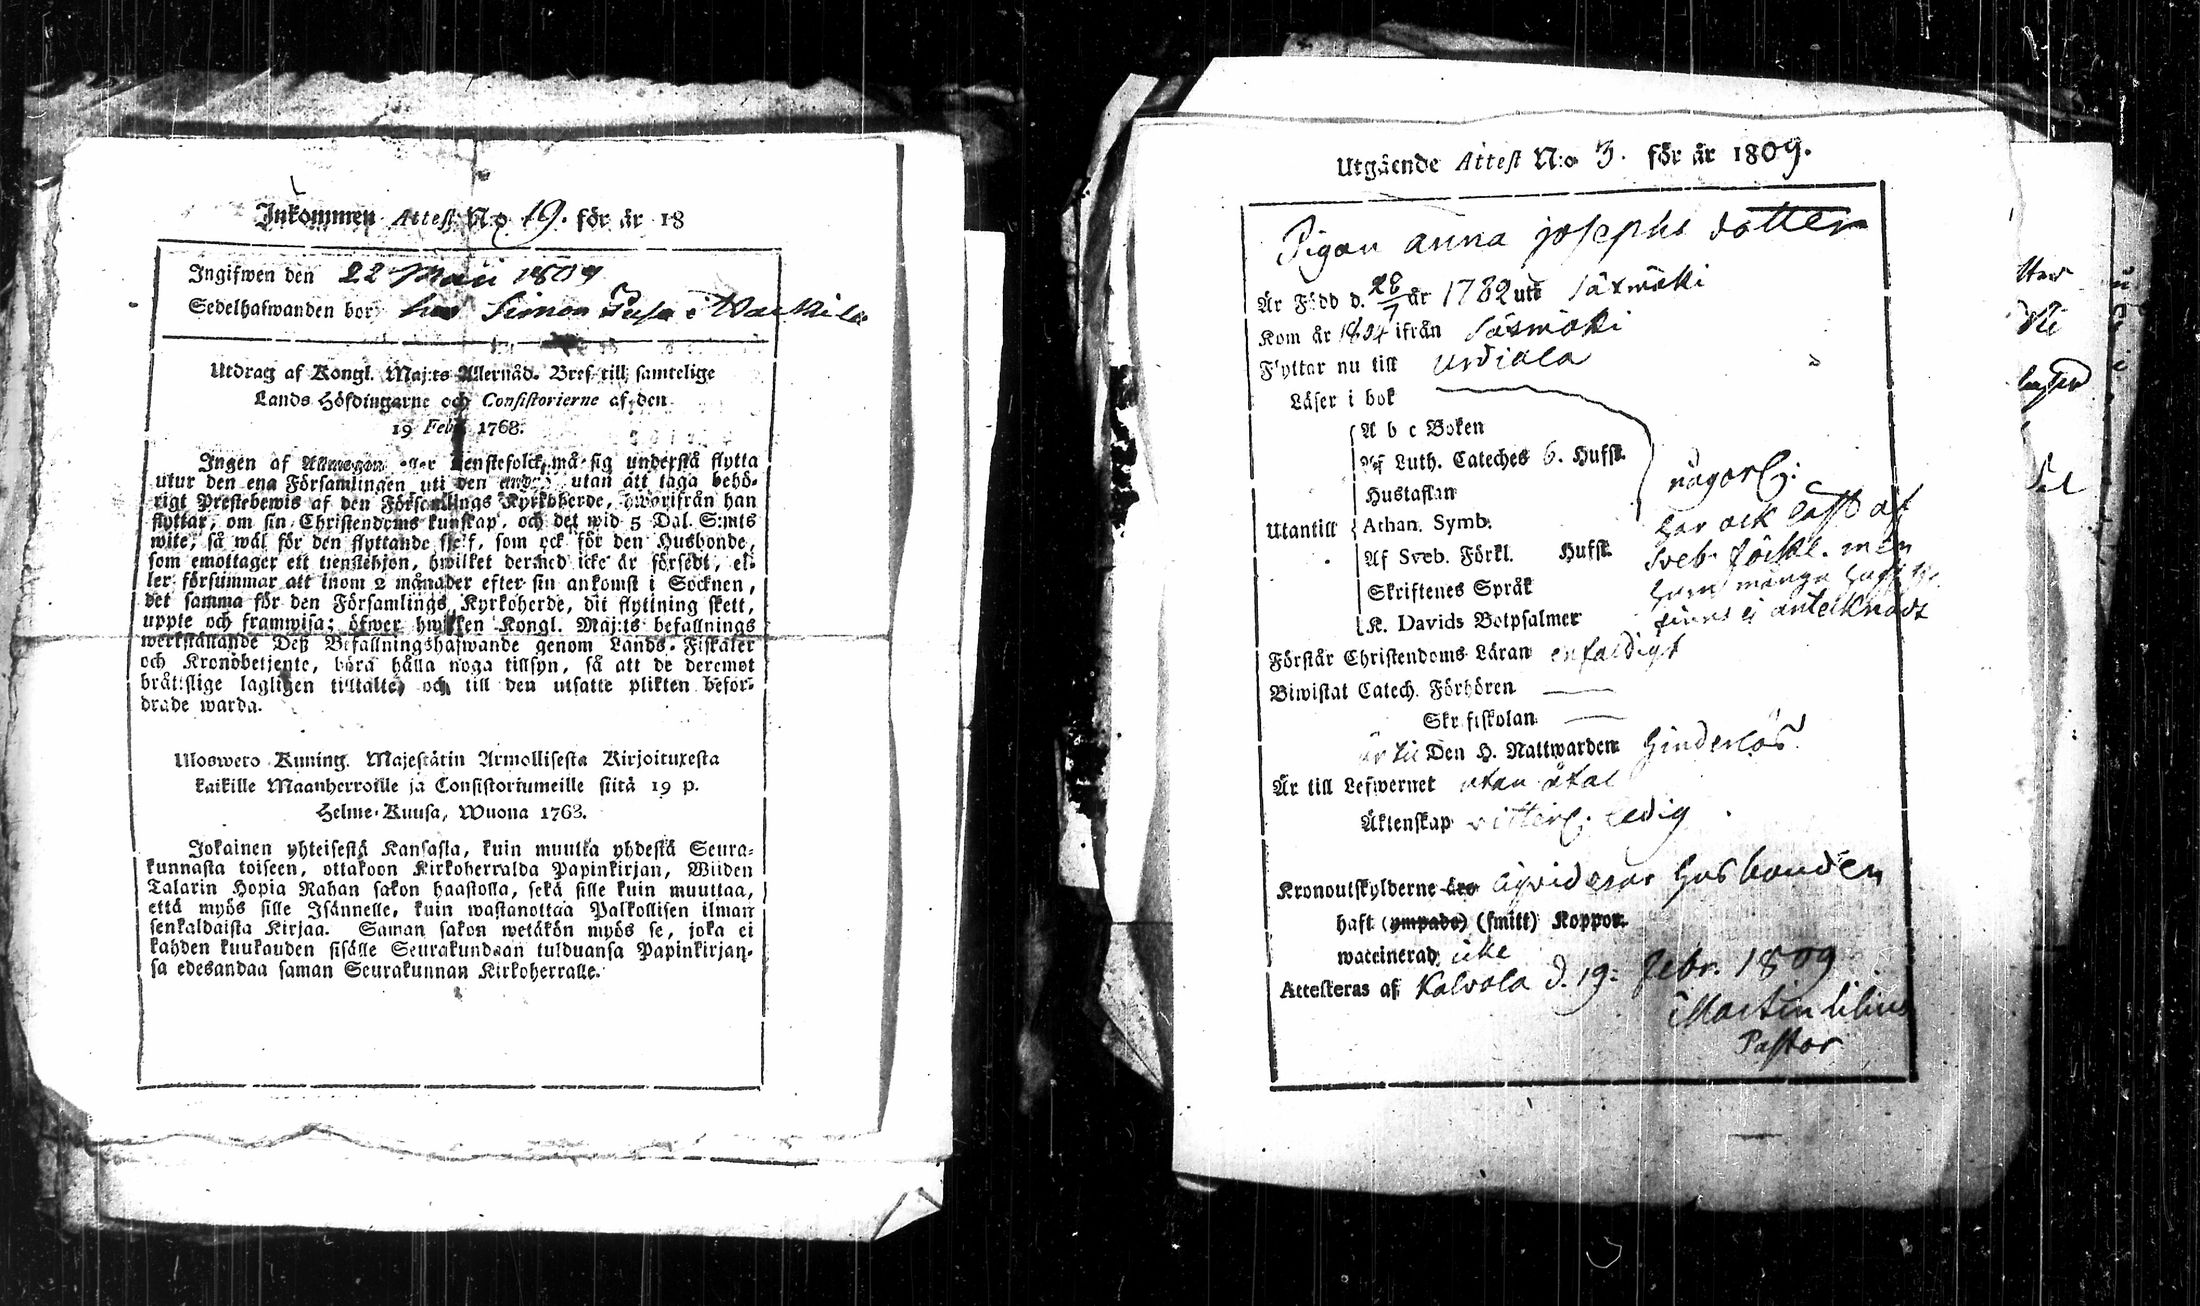 Inkommen Attest No 19. för år 18
Ingifwen den 22 Maii 1809
Sedelhafwanden bor hos Simon i
Utdrag af Kongl. Maj:ts Allernåd. Bref till samtelige
Lands Höfdingarne och Consistorierne af den
19 Febr. 1768.
Ingen af Allmogen eller tienstefolck må sig understå flytta
utur den ena Församlingen uti den andra utan att taga behö-
rigt Prestebewis af den Församlings Kyrkoherde, hworifrån han
flyttar, om sin Christendoms kunskap, och det wid 5 Dal. S:mts
wite, så wäl för den flyttande sjelf, som ock för den Husbonde,
som emottager ett tienstehjon, hwilket dermed icke är försedt, el-
ler försummar att inom 2 månader efter sin ankomst i Socknen,
det samma för den Församlings Kyrkoherde, dit flyttning skett,
uppte och framwisa; öfwer hwilken Kongl. Maj:ts befallnings
werkställande Deß Befallningshafwande genom Lands-Fiskaler
och Kronobetjente, böra hålla noga tillsyn, så att de deremot
bråtslige lagligen tilltalte, och till den utsatte plikten beför-
drade warda.
Uloswero Kuning. Majestätin Armollisesta Kirjoituxesta
kaikille Maanherroille ja Consistoriumeille siitä 19 p.
Helme-Kuusa, Wuona 1763.
Jokainen yhteisestä Kansasta, kuin muutta yhdestä Seura-
kunnasta toiseen, ottakoon Kirkoherralda Papinkirjan, Wiiden
Talarin Hopia Rahan sakon haastolla, sekä sille kuin muuttaa,
että myös sille Isännelle, kuin wastanottaa Palkollisen ilman
senkaldaista Kirjaa. Saman sakon wetäkön myös se, joka ei
kahden kuukauden sisälle Seurakundaan tulduansa Papinkirjan-
sa edesandaa saman Seurakunnan Kirkoherralle.
Utgående Attest N:o 3. för år 1809.
Pigan anna josephs dotter
Är Född d. 28/7 år 1782 uti Säxmäki
Kom år 1804 ifrån Säxmäki
Flyttar nu till Urdiala
Läser i bok
A b c Boken
Af Luth. Cateches 6. Hufst.
någorl:
Hustaflan
Utantill Athan. Symb.
har ock läst af
Af Sveb. Förkl. Hufst.
Sveb. förkl. men
Skriftenes Språk
huru många
K. Davids Botpsalmer
finns ej antecknadt
Förstår Christendoms Läran enfaldigt
Biwistat Catech. Förhören —
Skriftskolan —
är till Den H. Nattwarden hinderlös
Är till Lefwernet utan åtal
Äktenskap witterl: ledig
Kronoutskylderne äro husbonden
haft (ympade) (smitt) Koppor.
waccinerad icke
Attesteras af Kalvola d. 19: Febr. 1809
Martin Lilius
Pastor